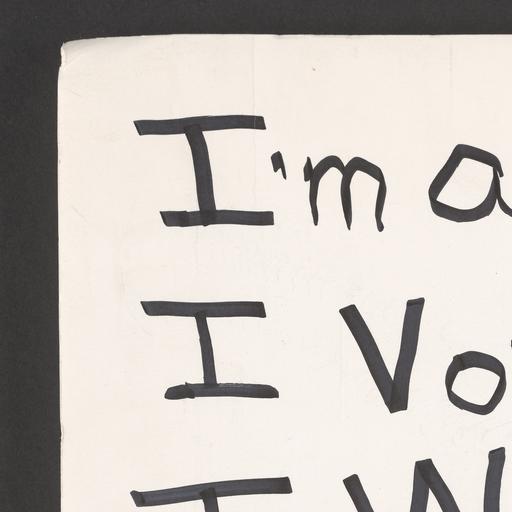 I'm a
I Vo
I W